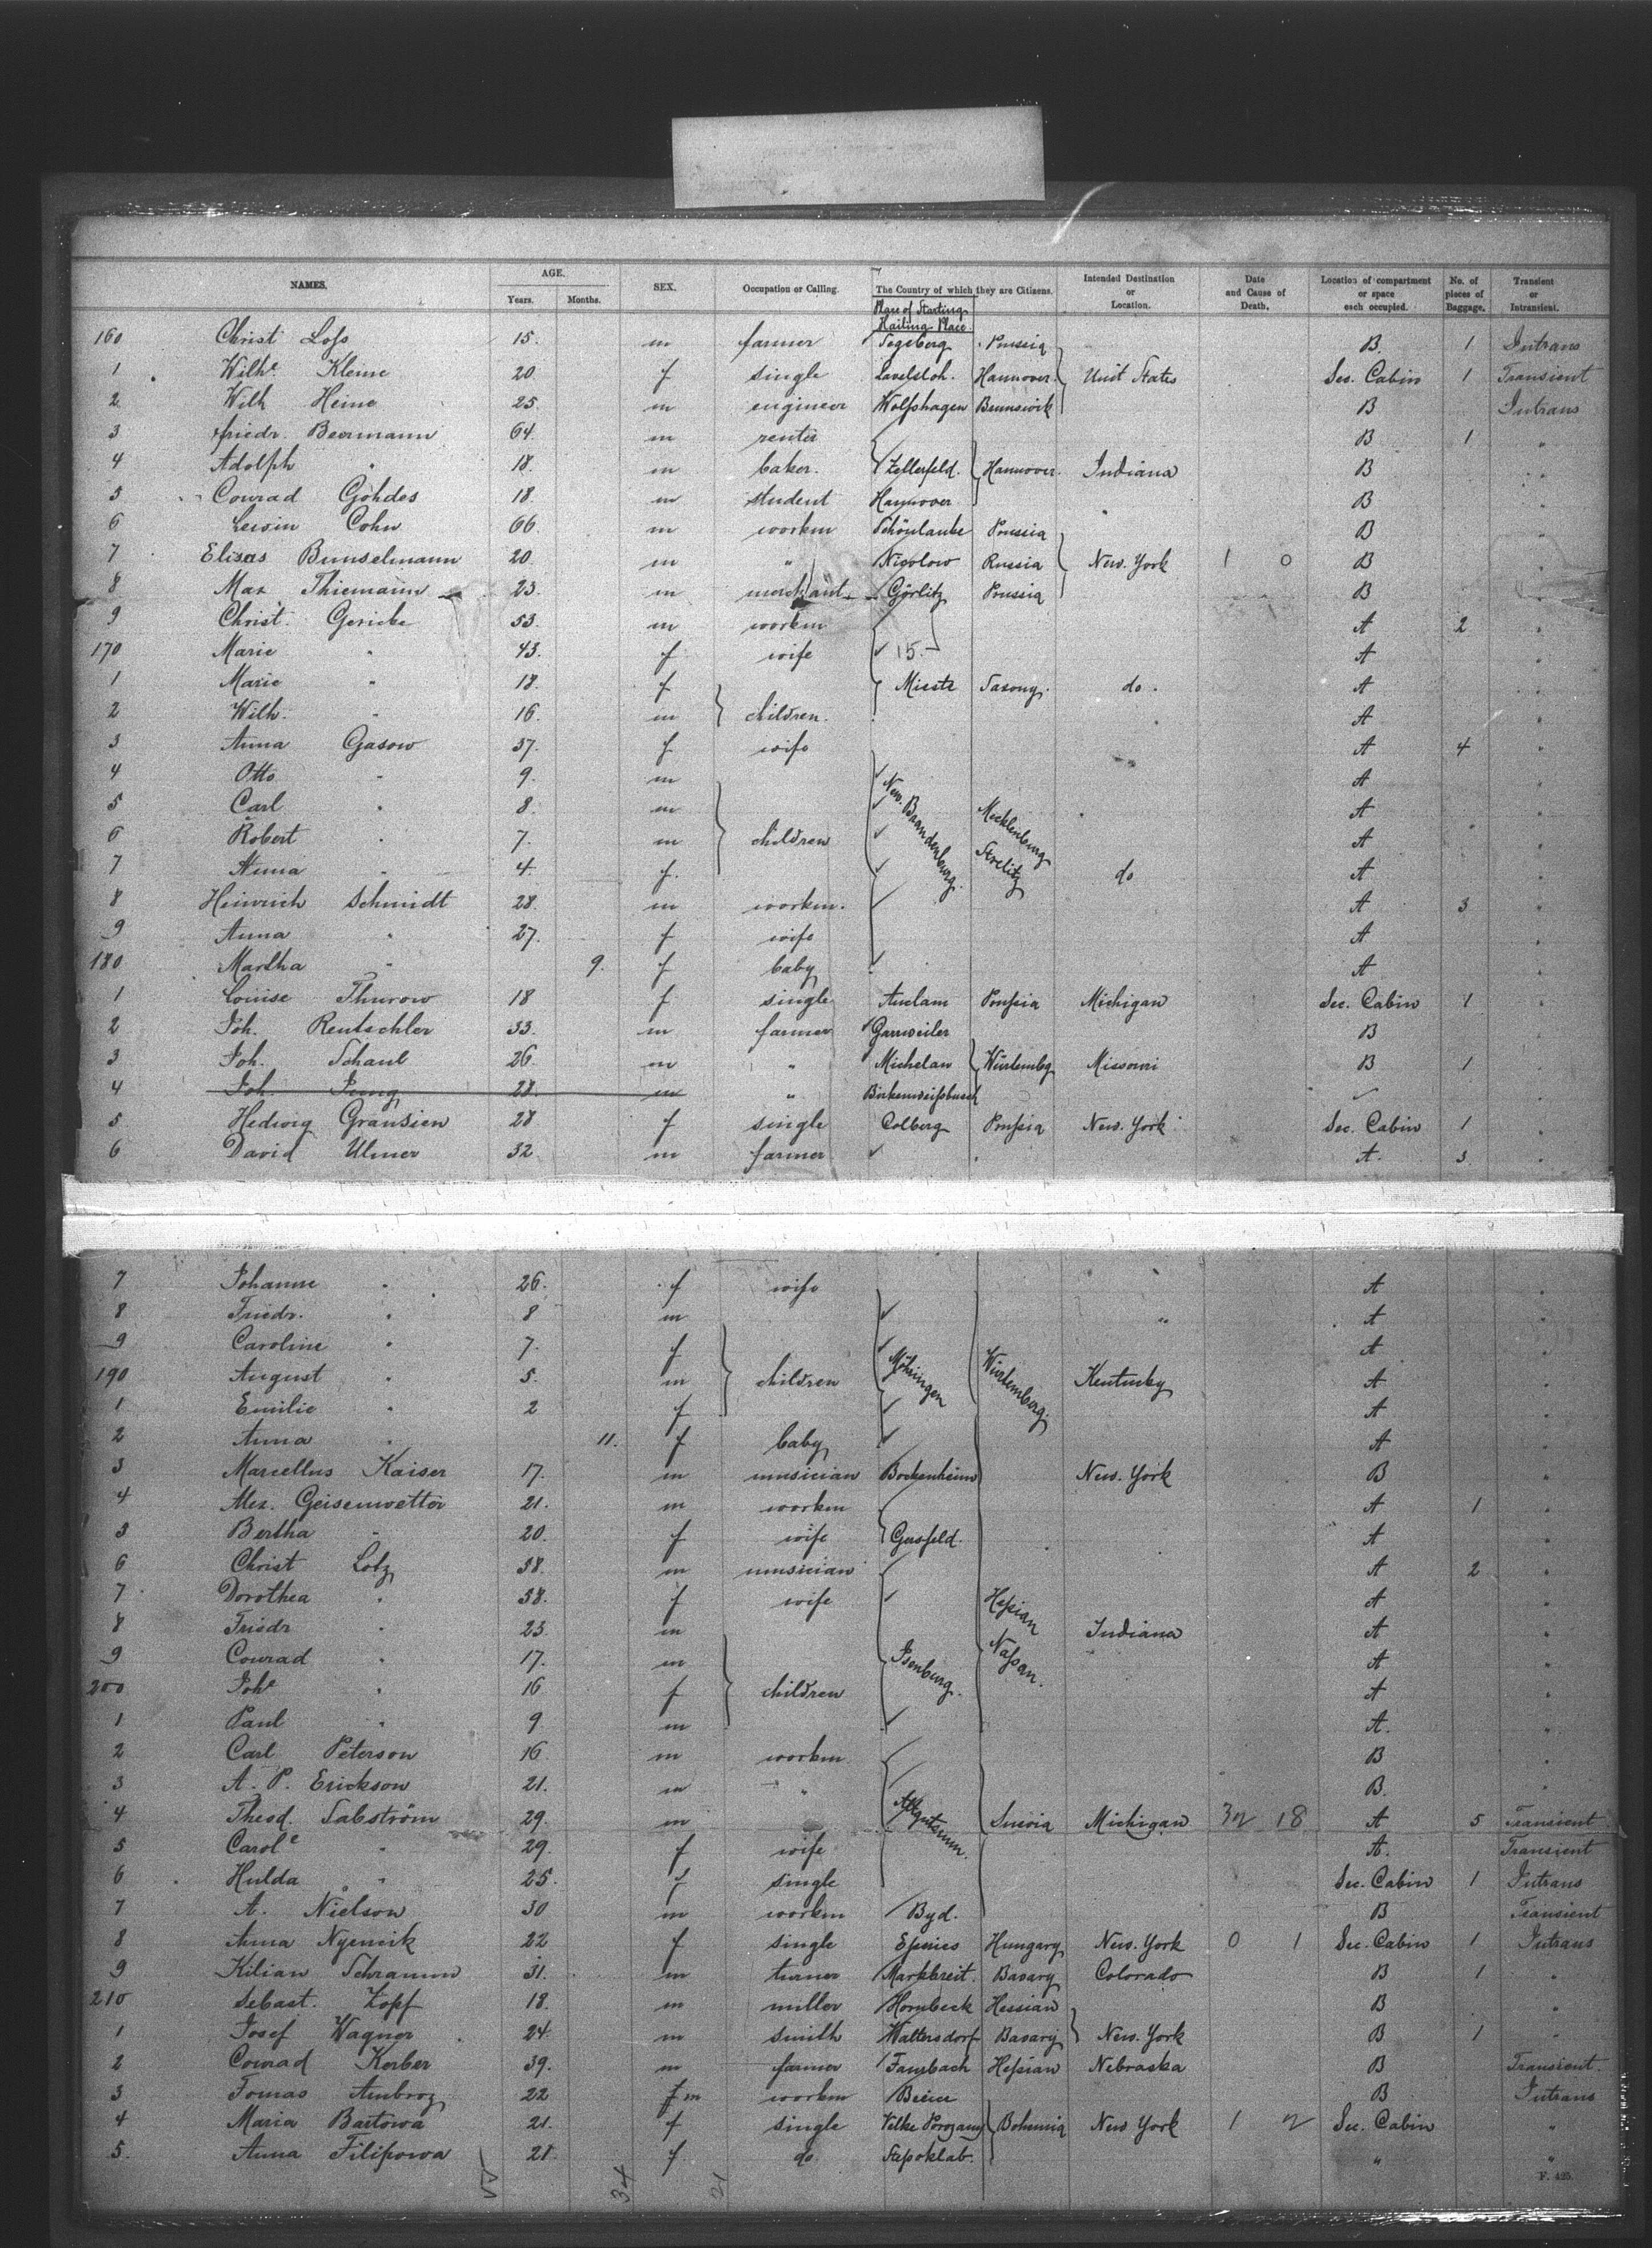 NAMES. AGE. Years. Months. SEX. Occupation or Calling. The Country of which they are Citizens. Intended Destination or Location. Date and Cause of Death. Location of compartment or space each occupied. No. of pieces of Baggage. Transient or Intransient.
Place of Starting
Hailing Place
160 Christ Loſs 15. m farmer Segeberg Prussia B. 1 Intrans
1 Wilhe Kleine 20 f single Lavelsloh. Hannover. Unit States Sec. Cabin 1 Transient
2 Wilh Heine 25. m engineer Wolfshagen Brunswick B Intrans
3 Friedr. Beermann 64. m B 1 "
4 Adolph " 18. m baker. Zellerfeld. Hannover. Indiana B "
5 Conrad Gohdes 18. m student Hannover B "
6 Cohn 66. m workm Schönlanke Prussia B "
7 Elisas Bunselmann 20. m " Nicolow Russia New. York 1 0 B "
8 Max Thiemann 23. m merchant Görlitz Prussia B "
9 Christ. Gericke 53 m workm A 2 "
170 Marie " 43. f wife 15. A "
1 Marie " 18. f Mieste Saxony. do. A "
2 Wilh. " 16. m children. A "
3 Anna Gasow 37. f wife A 4 "
4 Otto " 9. m New. Brandenburg. Mecklenburg Strelitz A "
5 Carl " 8. m A "
6 Robert " 7. m children A "
7 Anna " 4. f. do A "
8 Heinrich Schmidt 28. m workm. A 3 "
9 Anna " 27. f wife A "
180 Martha " 9. f baby A "
1 Louise Thurow 18 f single Anclam Prussia Michigan Sec. Cabin 1 "
2 Joh. Rentschler 33. m farmer Garrweiler B "
3 Joh. Schaul 26. m " Michelau Würtembg Missouri B 1 "
4 Joh. Jung 28. m " Birkenweissbuch "
5 Hedwig Gransien 28 f single Colberg Prussia New. York Sec. Cabin 1 "
6 David Ulmer 32 m farmer A. 3 "
7 Johanne " 26. f wife A "
8 Friedr. " 8 m " A "
9 Caroline " 7. f A "
190 August " 5. m children Möhringen Würtemberg. Kentucky A "
1 Emilie " 2 f A "
2 Anna " 11. f baby A "
3 Marcellus Kaiser 17. m musician Bockenheim New. York B "
4 Alex. Geisenwetter 21. m workm A 1 "
5 Bertha " 20. f wife Gersfeld. A "
6 Christ Lotz 58. m musician A 2 "
7 Dorothea " 58. f wife Hessian Nassau. A "
8 Friedr " 23. m Indiana A "
9 Conrad " 17. m Isenburg. A "
200 Johe " 16 f children A "
1 Paul " 9 m A. "
2 Carl Peterson 16. m workm B "
3 A. P. Erickson 21. m " B. "
4 Theod. Sabström 29. m Suevia Michigan 32 18 A 5 Transient
5 Carole " 29. f wife A. Transient
6 Hulda " 25. f single Sec. Cabin 1 Intrans
7 A. Nielson 30 m workm Byd. B Transient
8 Anna Nyemik 22 f single Eperies Hungary New. York 0 1 Sec. Cabin 1 Intrans
9 Kilian Schramm 31. m turner Marktbreit. Bavary Colorado B 1 "
210 Sebast. Zopf 18. m miller Hornbeck Hessian B "
1 Josef Wagner 24. m smith Waltersdorf Bavary New. York B 1 "
2 Conrad Kerber 39. m farmer Fambach Hessian Nebraska B Transient
3 Tomas Ambroz 22 f m workm B Intrans
4 Maria Bartowa 21. f single Velke Bohemia New York 1 2 Sec. Cabin "
5. Anna Filipowa 21 f do " "
34 21
F. 425.